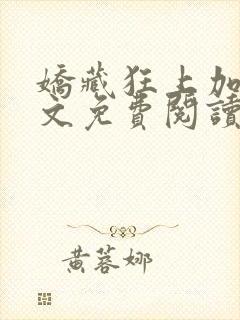 嬌藏狂上加
文免費閱讀
黃蓉娜